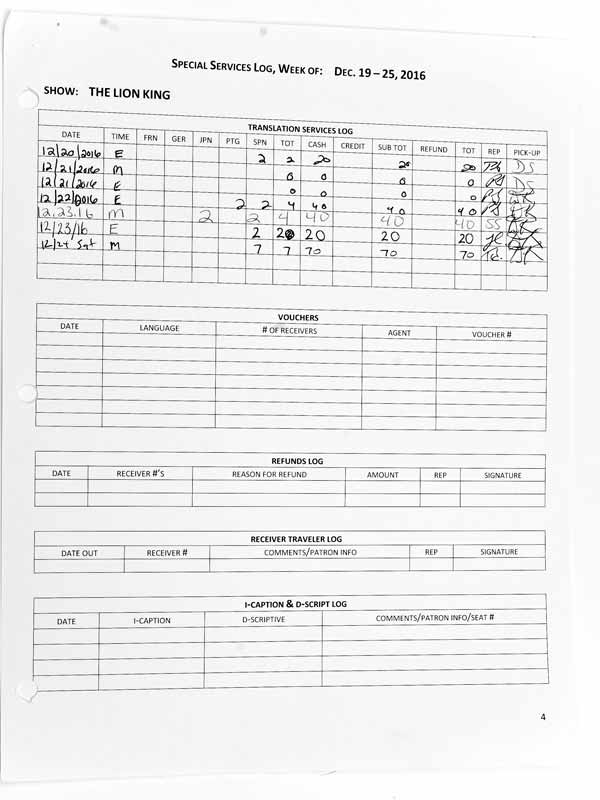 SPECIAL SERVICES LOG, WEEK OF: DEC. 19 – 25, 2016
SHOW: THE LION KING
TRANSLATION SERVICES LOG
DATE TIME FRN GER JPN PTG SPN TOT CASH CREDIT SUB TOT REFUND TOT REP PICK-UP
12/20/2016 E 2 2 20 20 20 DS
12/21/2016 M 0 0 0 0 DS
12/21/2016 E 0 0 0 0
12/22/2016 E 2 2 4 40 40 40
12.23.16 M 2 2 4 40 40 40 SS
12/23/16 E 2 2 20 20 20
12/24 Sat M 7 7 70 70 70
VOUCHERS
DATE LANGUAGE # OF RECEIVERS AGENT VOUCHER #
REFUNDS LOG
DATE RECEIVER #'S REASON FOR REFUND AMOUNT REP SIGNATURE
RECEIVER TRAVELER LOG
DATE OUT RECEIVER # COMMENTS/PATRON INFO REP SIGNATURE
I-CAPTION & D-SCRIPT LOG
DATE I-CAPTION D-SCRIPTIVE COMMENTS/PATRON INFO/SEAT #
4